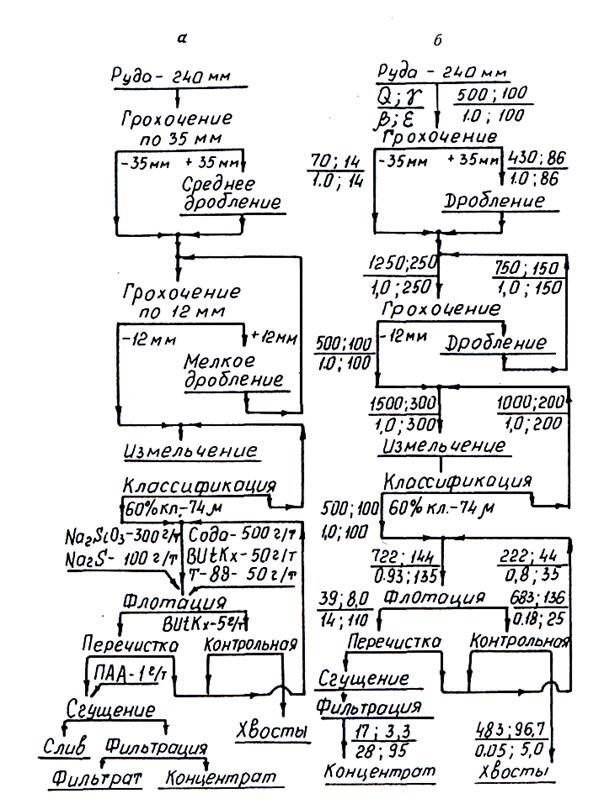 а
Руда - 240 мм
Грохочение
по 35 мм
-35мм + 35мм
Среднее
дробление
Грохочение
по 12 мм
-12мм +12мм
Мелкое
дробление
Измельчение
Классификация
60% кл.-74 м
Na2SiO3-300 г/т Сода-500 г/т
Na2S-100 г/т BUtKx-50 г/т
Т-88- 50 г/т
Флотация
BUtKx-5 г/т
Перечистка Контрольная
ПАА-1 г/т
Сгущение
Хвосты
Слив Фильтрация
Фильтрат Концентрат
б
Руда - 240 мм
Q; γ 500; 100
β; ε 1.0 ; 100
Грохочение
70; 14 -35мм + 35мм 430; 86
1.0 ; 14 1.0; 86
Дробление
1250;250 750; 150
1,0 ; 250 1,0 ; 150
Грохочение
500;100 -12мм Дробление
1.0 ; 100
1500;300 1000;200
1,0 ; 300 1,0 ; 200
Измельчение
Классификация
500;100 60% кл.-74 μ
1,0; 100
722; 144 222; 44
0.93; 135 0,8; 35
39; 8,0 Флотация 683; 136
14; 110 0.18; 25
Перечистка Контрольная
Сгущение
Фильтрация
17; 3,3 483; 96,7
28; 95 0.05; 5,0
Концентрат Хвосты